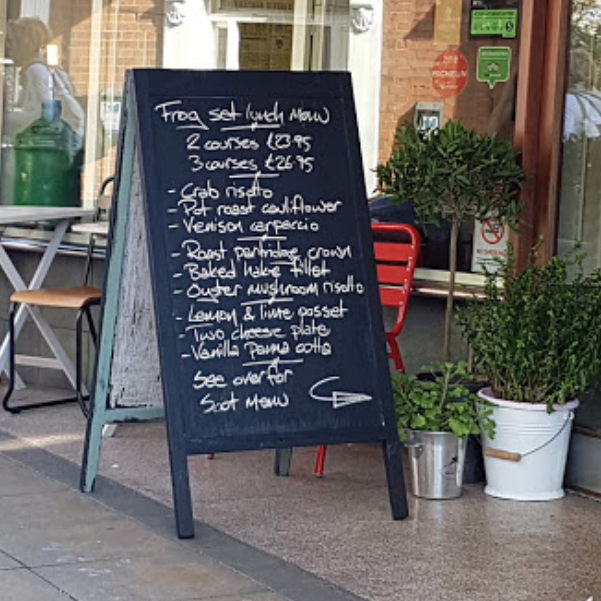 Frog set lunch Menu
2 courses £23.95
3 courses £26.95
- Crab risotto
- Pot roast cauliflower
- Venison carpaccio
- Roast partridge crown
- Baked hake fillet
- Oyster mushroom risotto
- Lemon & lime posset
- Two cheese plate
- Vanilla panna cotta
See over for
Sunday Menu